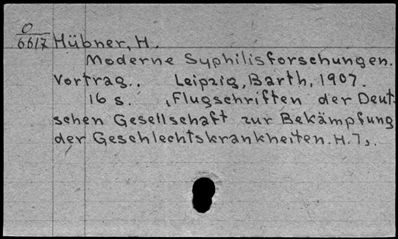 O
6617 Hübner, H.
Moderne Syphilisforschungen.
Vortrag.. Leipzig, Barth, 1907.
16 s. (Flugschriften der Deut-
schen Gesellschaft zur Bekämpfung
der Geschlechtskrankheiten. H. 7).